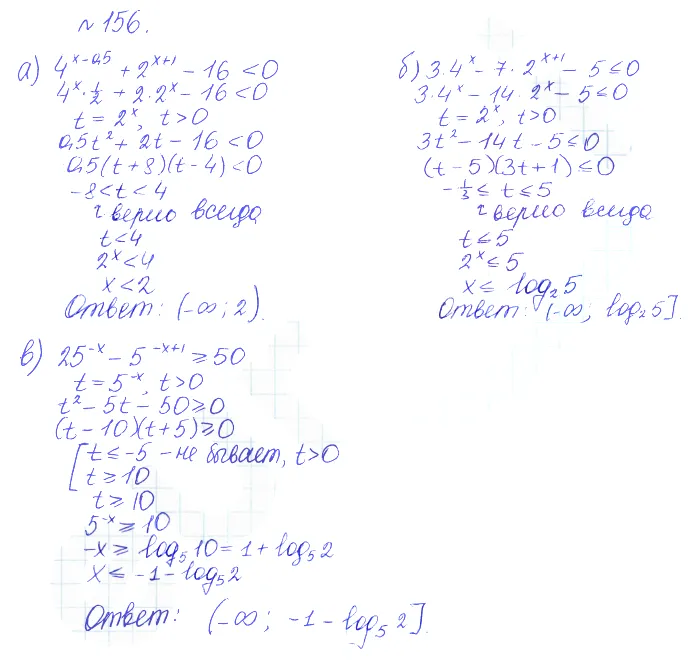 №156.
а) 4^{x-0,5} + 2^{x+1} - 16 < 0
4^x · 1/2 + 2 · 2^x - 16 < 0
t = 2^x, t > 0
0,5t² + 2t - 16 < 0
0,5(t + 8)(t - 4) < 0
-8 < t < 4
верно всегда
t < 4
2^x < 4
x < 2
Ответ: (-∞; 2).
б) 3 · 4^x - 7 · 2^{x+1} - 5 ≤ 0
3 · 4^x - 14 · 2^x - 5 ≤ 0
t = 2^x, t > 0
3t² - 14t - 5 ≤ 0
(t - 5)(3t + 1) ≤ 0
-1/3 ≤ t ≤ 5
верно всегда
t ≤ 5
2^x ≤ 5
x ≤ log₂5
Ответ: (-∞; log₂5].
в) 25^{-x} - 5^{-x+1} ≥ 50
t = 5^{-x}, t > 0
t² - 5t - 50 ≥ 0
(t - 10)(t + 5) ≥ 0
[ t ≤ -5 - не бывает, t > 0
t ≥ 10
t ≥ 10
5^{-x} ≥ 10
-x ≥ log₅10 = 1 + log₅2
x ≤ -1 - log₅2
Ответ: (-∞; -1 - log₅2].